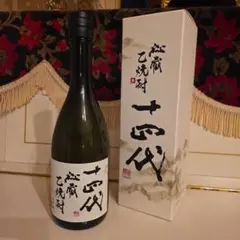 十四代
秘蔵
乙焼酎
秘蔵
乙焼酎
十四代